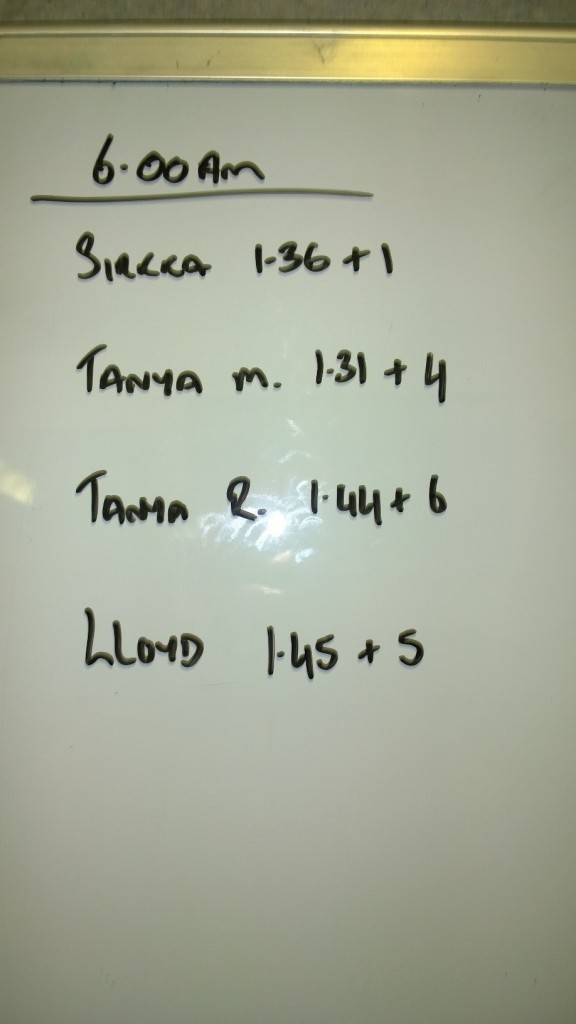 6.00 Am
SIRKKA 1.36 + 1
TANYA m. 1.31 + 4
TANYA R. 1.44 + 6
LLOYD 1.45 + 5